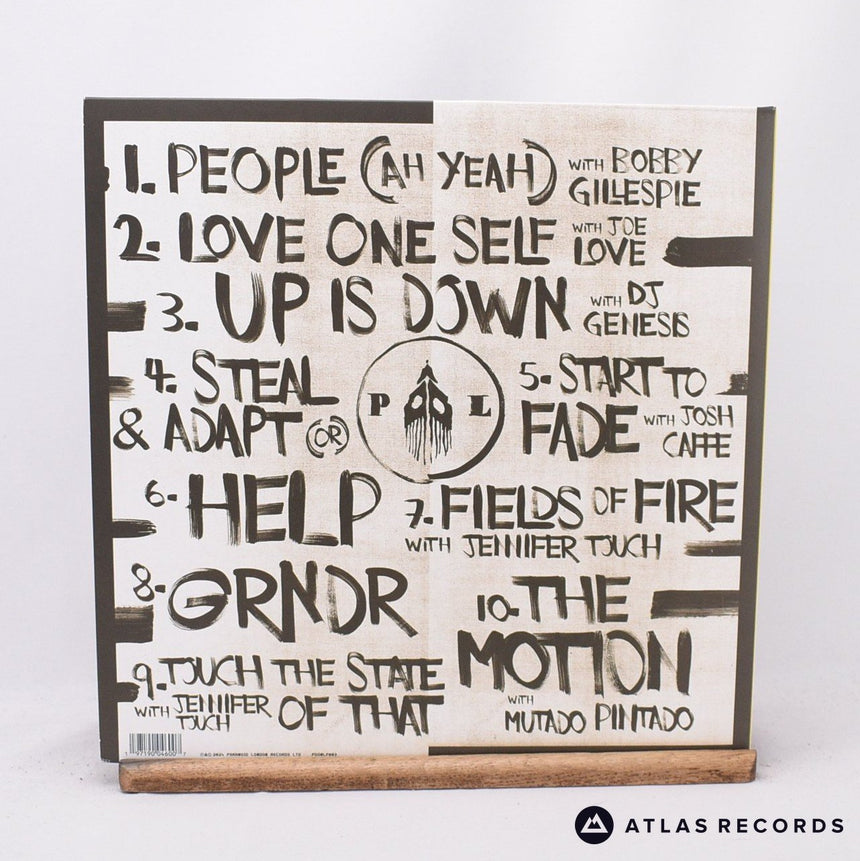 1. PEOPLE (AH YEAH) WITH BOBBY GILLESPIE
2. LOVE ONE SELF WITH JOE LOVE
3. UP IS DOWN WITH DJ GENESIS
4. STEAL & ADAPT (OR)
P L
5. START TO FADE WITH JOSH CAFFE
6. HELP
7. FIELDS OF FIRE
WITH JENNIFER TOUCH
8. GRNDR
9. TOUCH THE STATE OF THAT
WITH JENNIFER TOUCH
10. THE MOTION
WITH MUTADO PINTADO
1 97190 04600 7
2024 PARANOID LONDON RECORDS LTD
ATLAS RECORDS